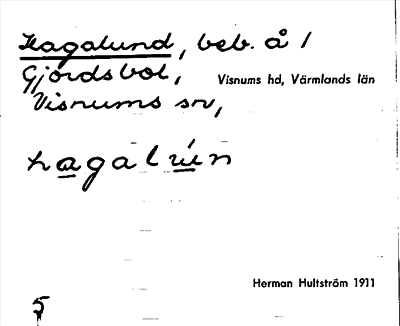 Hagalund, beb. å 1
Gjordsbol, Visnums hd, Värmlands län
Visnums sn,
hagalún
Herman Hultström 1911
5